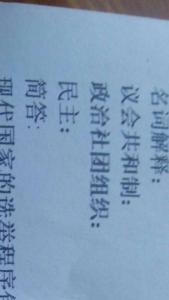 名词解释：
议会共和制：
政治社团组织：
民主：
简答：
现代国家的选举程序